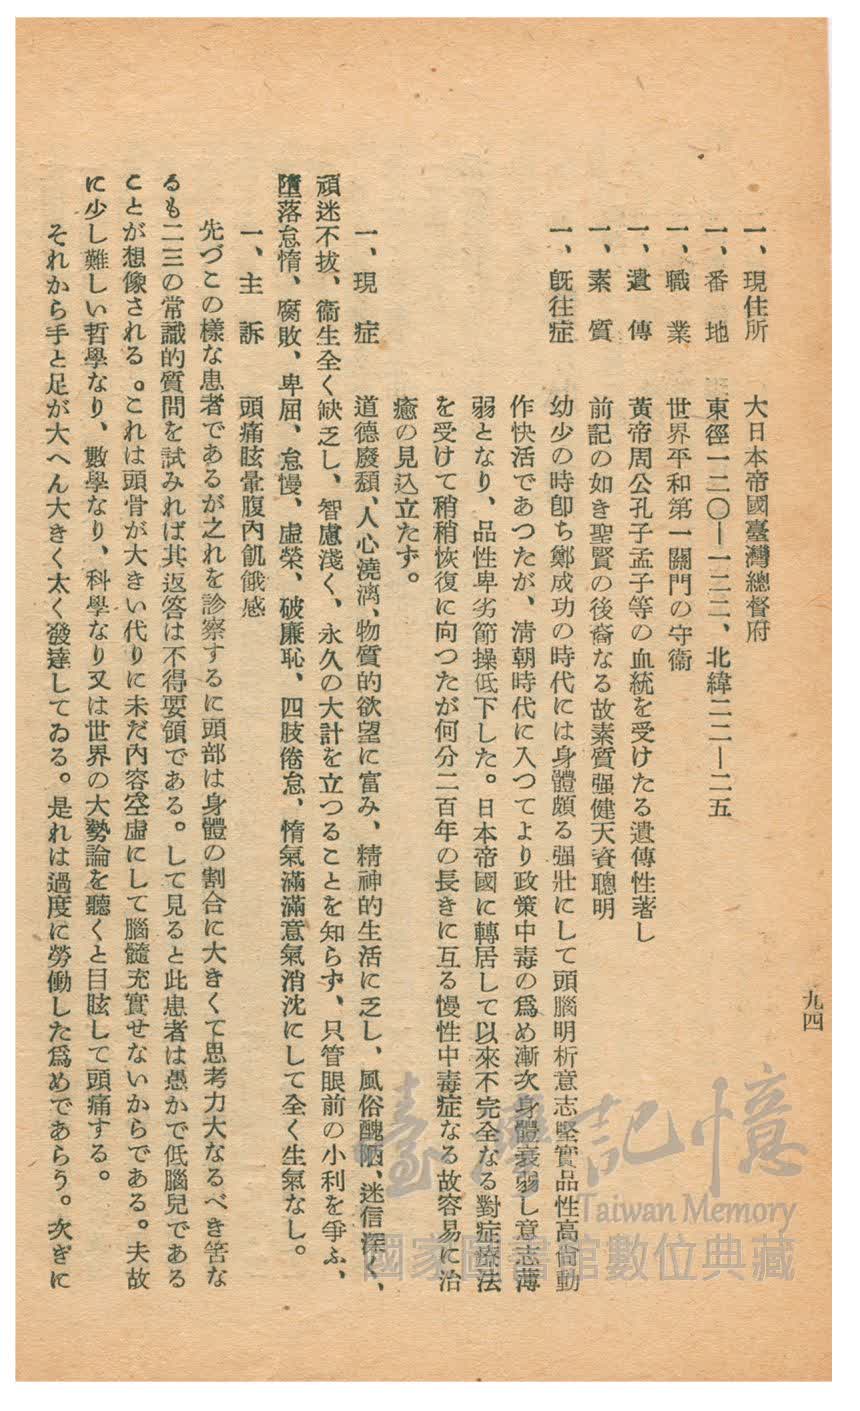 九四
一、現住所　大日本帝國臺灣總督府
一、番　地　東徑一二〇—一二二、北緯二二—二五
一、職　業　世界平和第一關門の守衞
一、遺　傳　黃帝周公孔子孟子等の血統を受けたる遺傳性著し
一、素　質　前記の如き聖賢の後裔なる故素質强健天資聰明
一、旣往症　幼少の時卽ち鄭成功の時代には身體頗る强壯にして頭腦明析意志堅實品性高尙動
作快活であつたが、淸朝時代に入つてより政策中毒の爲め漸次身體衰弱し意志薄
弱となり、品性卑劣節操低下した。日本帝國に轉居して以來不完全なる對症療法
を受けて稍稍恢復に向つたが何分二百年の長きに亙る慢性中毒症なる故容易に治
癒の見込立たず。
一、現　症　道德廢頽、人心澆漓、物質的欲望に富み、精神的生活に乏し、風俗醜陋、迷信深く、
頑迷不拔、衞生全く缺乏し、智慮淺く、永久の大計を立つることを知らず、只管眼前の小利を爭ふ、
墮落怠惰、腐敗、卑屈、怠慢、虛榮、破廉恥、四肢倦怠、惰氣滿滿意氣消沈にして全く生氣なし。
一、主　訴　頭痛眩暈腹內飢餓感
先づこの樣な患者であるが之れを診察するに頭部は身體の割合に大きくて思考力大なるべき筈な
るも二三の常識的質問を試みれば其返答は不得要領である。して見ると此患者は愚かで低腦兒である
ことが想像される。これは頭骨が大きい代りに未だ內容空虛にして腦髓充實せないからである。夫故
に少し難しい哲學なり、數學なり、科學なり又は世界の大勢論を聽くと目眩して頭痛する。
それから手と足が大へん大きく太く發達してゐる。是れは過度に勞働した爲めであらう。次ぎに
臺灣記憶
Taiwan Memory
國家圖書館數位典藏